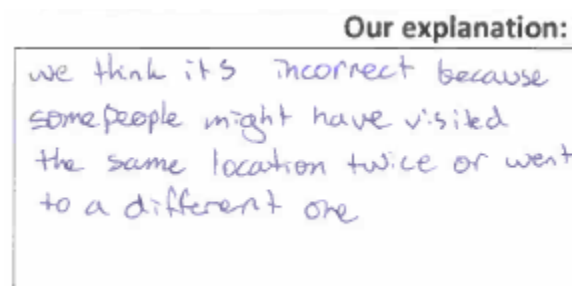 Our explanation:
we think its incorrect because
some people might have visited
the same location twice or went
to a different one